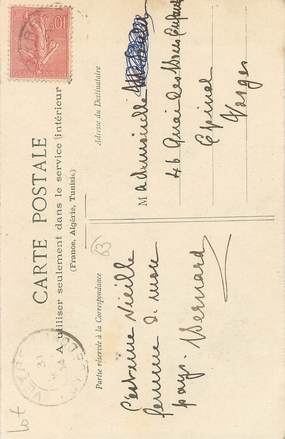 CARTE POSTALE
A utiliser seulement dans le service intérieur
(France, Algérie, Tunisie)
Partie réservée à la Correspondance
Adresse du Destinataire
L'extreme vieille
femme de mon
pays. Bernard
Mademoiselle
46 Quai des Bons Enfants
Epinal
Vosges
10
83
Lot